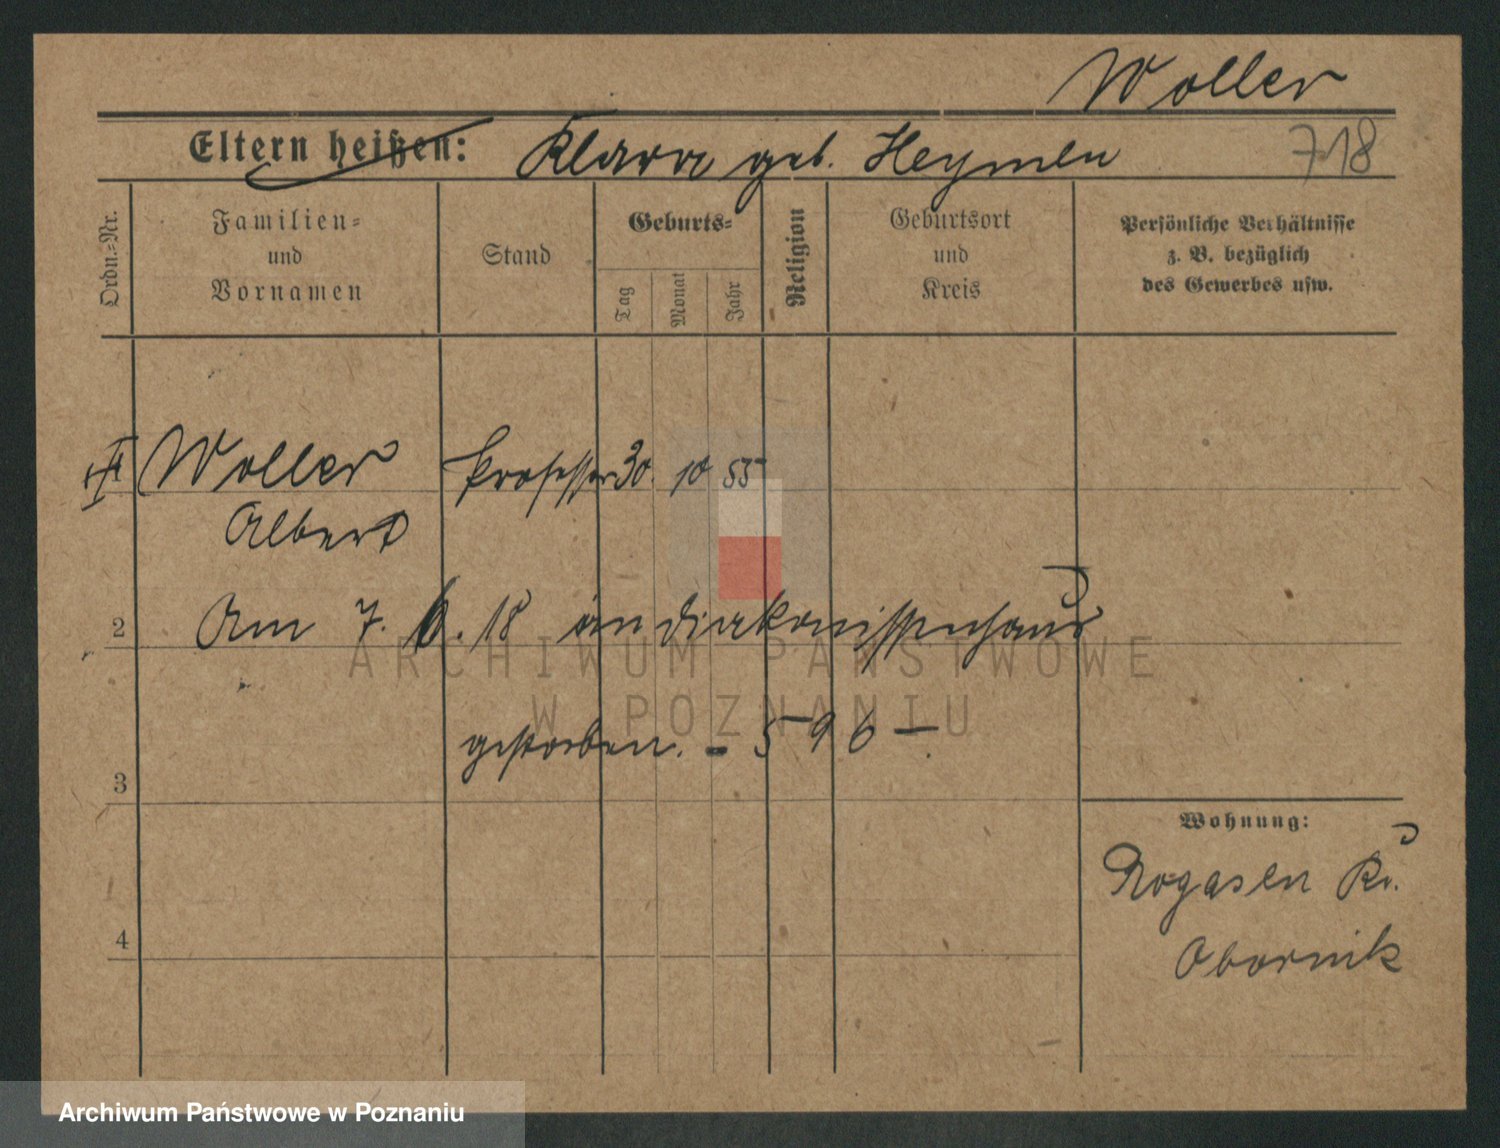 Woller
Eltern heißen: Klara geb. Heymen
718
Ordn.=Nr.
Familien=
und
Vornamen
Stand
Geburts=
Tag
Monat
Jahr
Religion
Geburtsort
und
Kreis
Persönliche Verhältnisse
z. B. bezüglich
des Gewerbes usw.
Woller Professor 30. 10 55
Albert
2 Am 7. 6. 18 im Diakonissenhaus
gestorben. - 596 -
3
4
Wohnung:
Rogasen Kr.
Obornik
ARCHIWUM PAŃSTWOWE
W POZNANIU
Archiwum Państwowe w Poznaniu